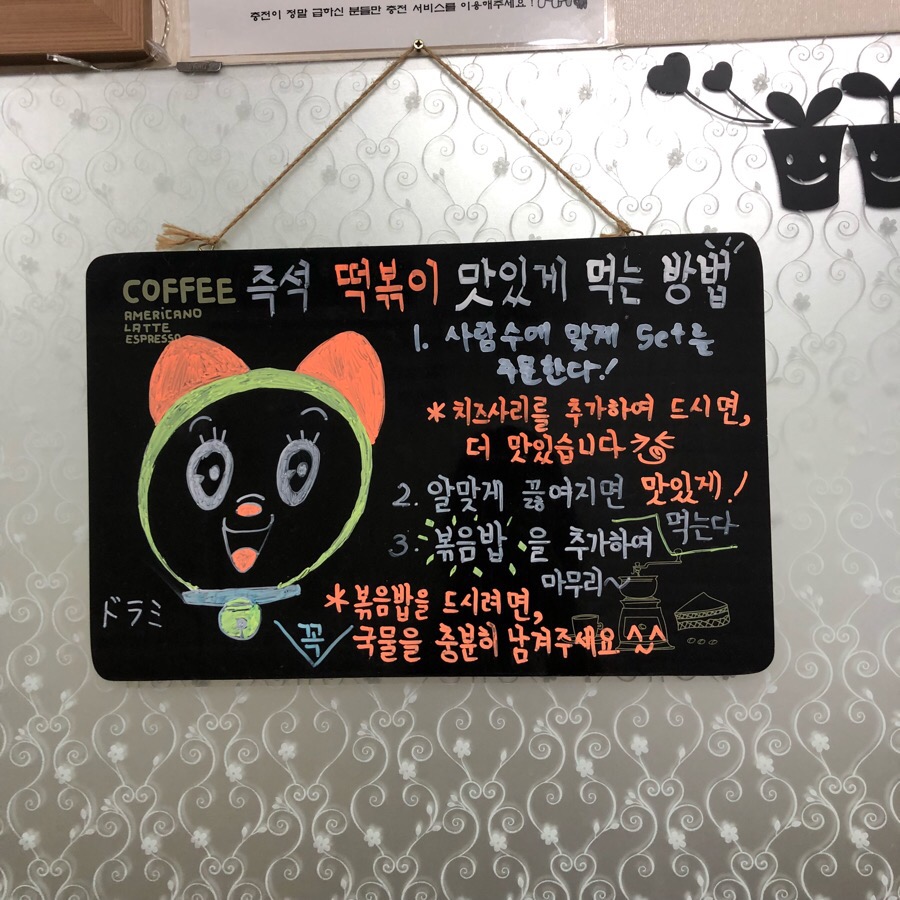 충전이 정말 급하신 분들만 충전 서비스를 이용해주세요!
COFFEE
AMERICANO
LATTE
ESPRESSO
즉석 떡볶이 맛있게 먹는 방법
1. 사람수에 맞게 Set를
주문한다!
*치즈사리를 추가하여 드시면,
더 맛있습니다
2. 알맞게 끓여지면 맛있게!
먹는다
3. 볶음밥을 추가하여
마무리~
*볶음밥을 드시려면,
꼭 국물을 충분히 남겨주세요 ^^
ドラミ